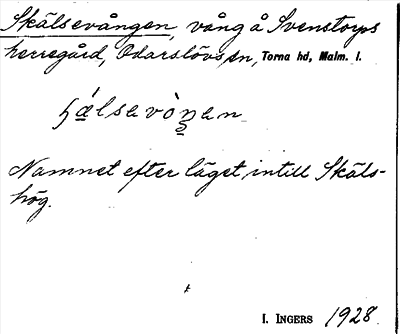 Skälsevången, vång å Svenstorps
herregård, Odarslövs sn, Torna hd, Malm. l.
Namnet efter läget intill Skäls-
hög.
I. INGERS 1928